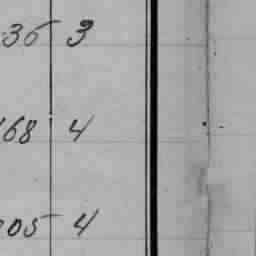 36 3
168 4
205 4